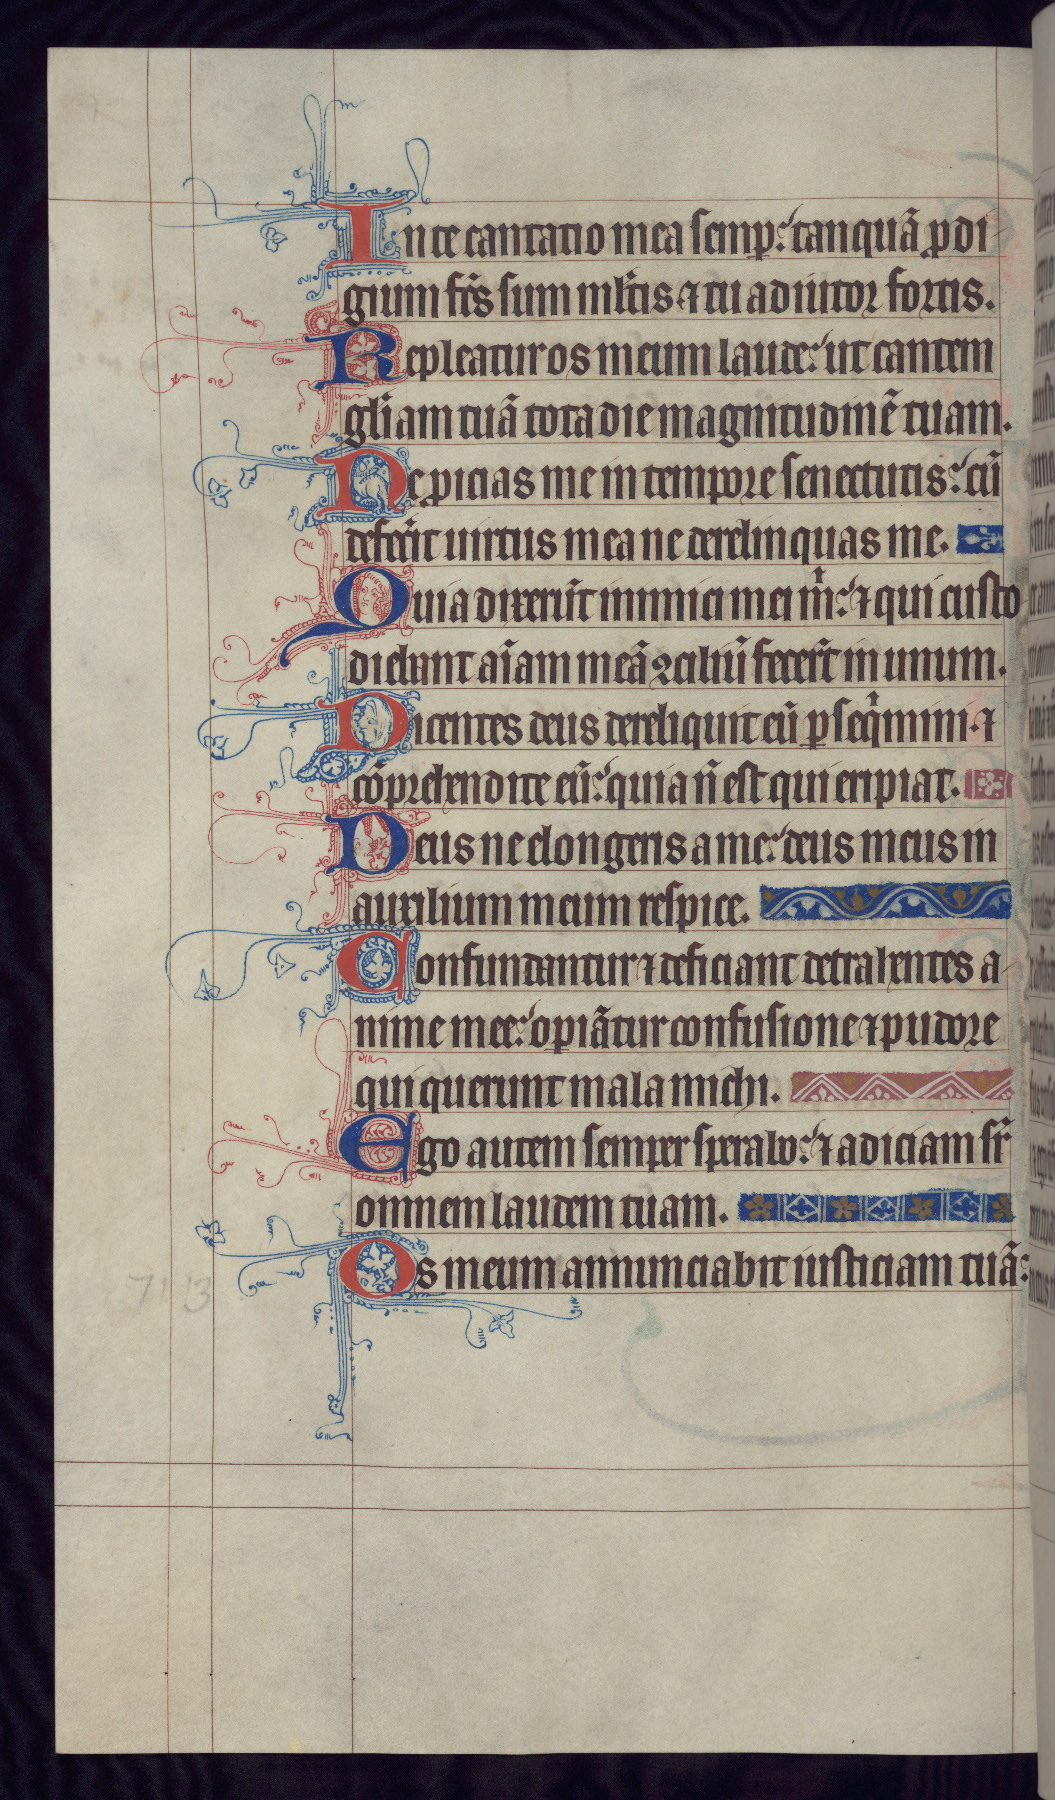 In te cantatio mea semꝑ: tanquã ꝓdi
gium fc̃s sum ml̃tis ⁊ tu adiutor fortis.
Repleatur os meum laude: ut cantem
gl̃iam tuã tota die magnitudinẽ tuam.
Ne ꝓicias me in tempore senectutis: cũ
defec̃it uirtus mea ne derelinquas me.
Quia dixerũt inimici mei m̃: ⁊ qui custo
diebant aĩam meã ꝯciliũ fecer̃t in unum.
Dicentes deus dereliquit eũ ꝑseqͥmini ⁊
cõprehendite eũ: quia ñ est qui eripiat.
Deus ne elongeris a me: deus meus in
auxilium meum respice.
Confundantur ⁊ deficiant detrahentes a
nime mee: opiãtur confusione ⁊ pudore
qui querunt mala michi.
Ego autem semper sperabo: ⁊ adiciam sr̃
omnem laudem tuam.
Os meum annunciabit iusticiam tuã:
71 13